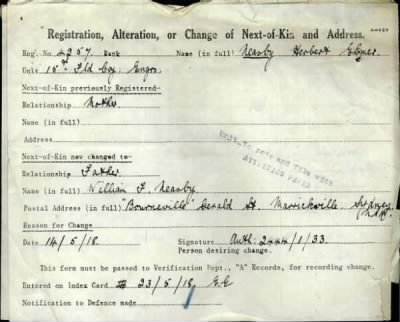 Registration, Alteration, or Change of Next-of-Kin and Address.
Reg. No. 4257 Rank Name (in full) Nearby Herbert Elmer
Unit 15th Fld Coy. Engrs.
Next-of-Kin previously Registered-
Relationship Mother
Name (in full)
Address
Next-of-Kin now changed to-
Relationship Father
Name (in full) William F. Nearby
Postal Address (in full) "Bourneville" Gerald St. Marrickville. Sydney N.S.W.
Reason for Change
Date 14/5/18. Signature Auth: 2444/1/33.
Person desiring change.
This form must be passed to Verification Dept., "A" Records, for recording change.
Entered on Index Card 23/5/18. E.G
Notification to Defence made